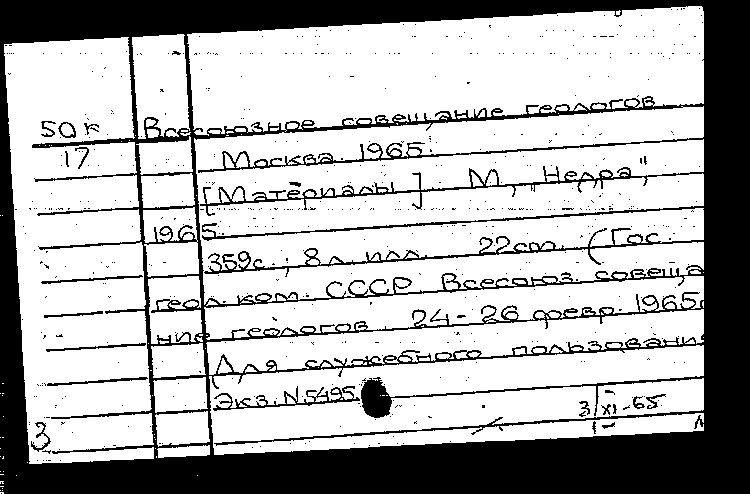 50к Всесоюзное совещание геологов
17 Москва. 1965.
[Материалы]. М., „Недра",
1965.
359с.; 8 л. илл. 22cm. (Гос.
геол. ком. СССР. Всесоюз. совеща
ние геологов. 24-26 февр. 1965.
Для служебного пользования
Экз. N.5495.
3/XI-65
3